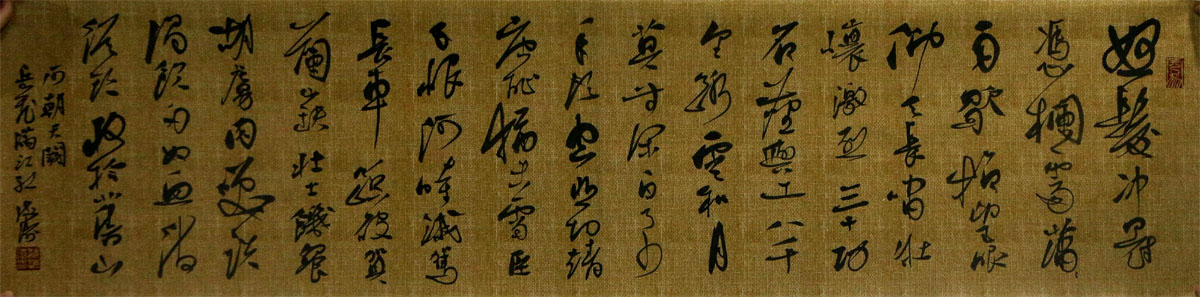 怒髮冲冠
憑欄處瀟瀟
雨歇抬望眼
仰天長嘯壯
懷激烈三十功
名塵與土八千
里路雲和月
莫等閑白了少
年頭空悲切靖
康恥猶未雪臣
子恨何時滅駕
長車踏破賀
蘭山缺壯士饑餐
胡虜肉笑談
渴飲匈奴血待
從頭收拾舊山
河朝天闕
岳飛滿江紅